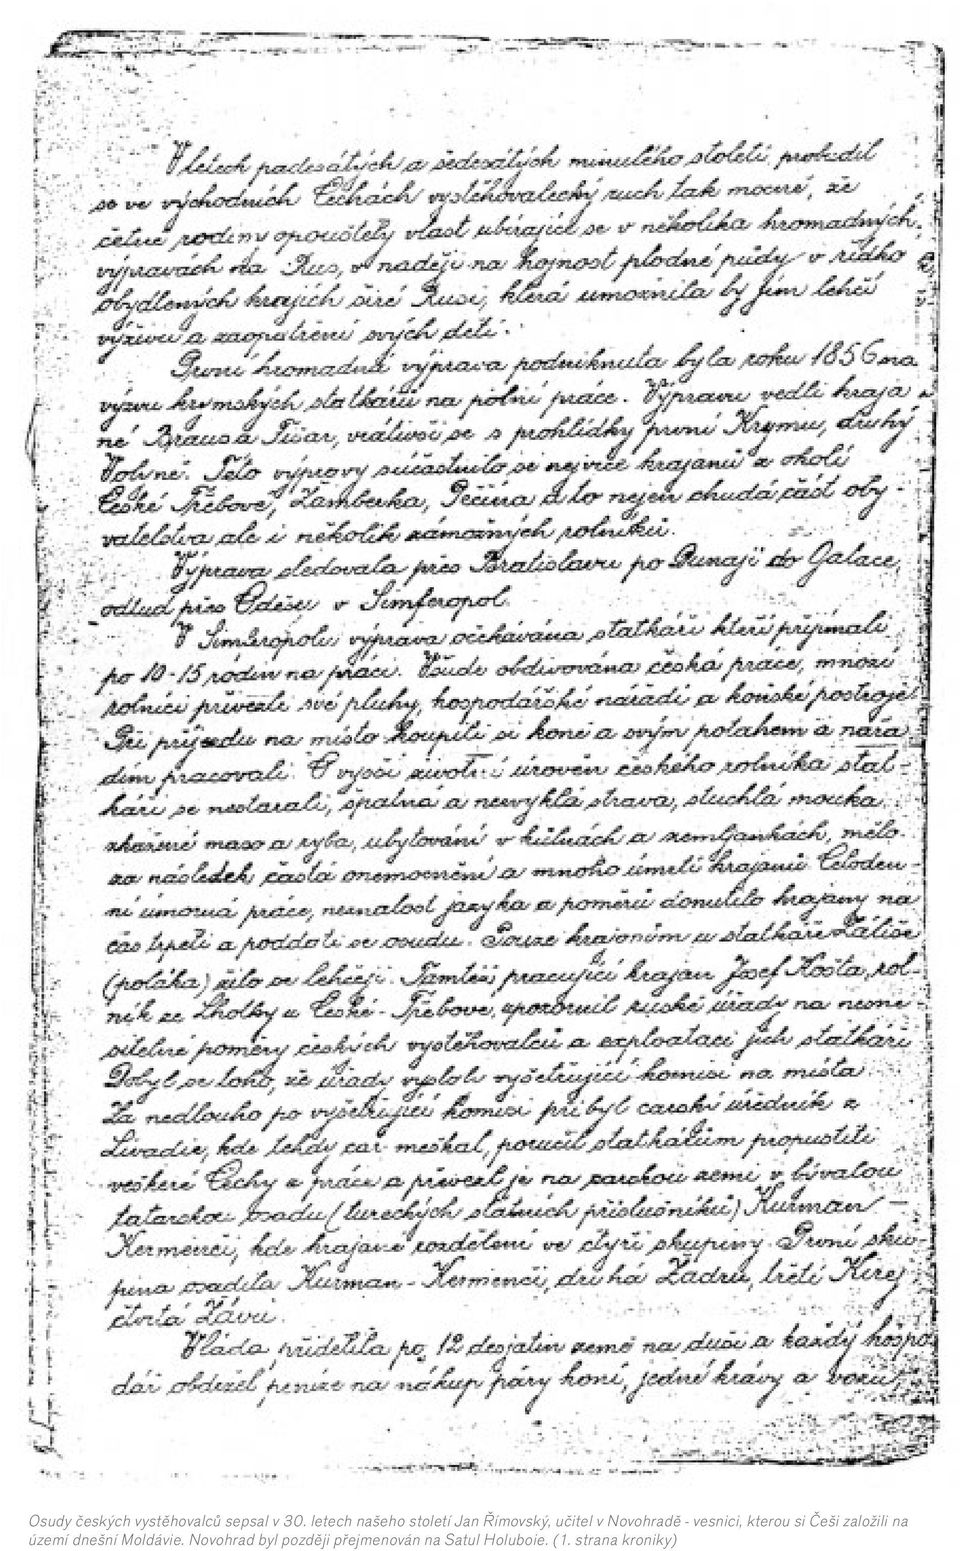 V letech padesátých a šedesátých minulého století probudil
se ve východních Čechách vystěhovalecký ruch tak mocně, že
četné rodiny opouštěly vlast ubírajíce se v několika hromadných
výpravách na Rus, v naději na hojnost plodné půdy v řídko
obydlených krajích širé Rusi, která umožnila by jim lehčí
výživu a zaopatření svých dětí.
První hromadná výprava podniknuta byla roku 1856 na
výzvu krymských statkářů na polní práce. Výpravu vedli kraja
né Brausa Tišar, vrátivší se s prohlídky první Krymu, druhý
Volyně. Této výpravy súčastnilo se nejvíce krajanů z okolí
České Třebové, Žamberka, Pěčína a to nejen chudá část oby-
vatelstva ale i několik zámožných rolníků.
Výprava sledovala přes Bratislavu po Dunaji do Galace,
odtud přes Oděsu v Simferopol.
V Simferopolu výprava očekávána statkáři kteří přijímali
po 10-15 rodin na práci. Všude obdivována česká práce, mnozí
rolníci přivezli své pluhy, hospodářské nářadí a koňské postroje
Při příjezdu na místo koupili si koně a svým potahem a nářa
dím pracovali. O vyšší životní úroveň českého rolníka stat-
káři se nestarali, špatná a nezvyklá strava, stuchlá mouka,
zkažené maso a ryba, ubytování v kůlnách a zemljankách, mělo
za následek častá onemocnění a mnoho úmrtí krajanů. Celoden-
ní úmorná práce, neznalost jazyka a poměrů donutilo krajany na
čas trpěti a poddati se osudu. Pouze krajanům u statkáře Záliše
(poláka) žilo se lehčeji. Tamtéž pracující krajan Josef Košta, rol-
ník ze Lhotky u České-Třebové, upozornil ruské úřady na nesne-
sitelné poměry českých vystěhovalců a exploataci jich statkáři
Dobyl se toho, že úřady vyslaly vyšetřující komisi na místa
Za nedlouho po vyšetřující komisi přibyl carský úředník z
Livadie, kde tehdy car meškal, poručil statkářům propustiti
veškeré Čechy z práce a převezl je na carskou zemi v bývalou
tatarskou osadu (tureckých státních příslušníků) Kurman-
Kermenči, kde krajané rozděleni ve čtyři skupiny. První sku-
pina osadila Kurman-Kermenči, druhá Žádru, třetí Kirej
čtvrtá Távu.
Vláda přidělila po 12 desjatin země na duši a každý hospo
dář obdržel peníze na nákup páry koní, jedné krávy a vozu,
Osudy českých vystěhovalců sepsal v 30. letech našeho století Jan Římovský, učitel v Novohradě - vesnici, kterou si Češi založili na
území dnešní Moldávie. Novohrad byl později přejmenován na Satul Holuboie. (1. strana kroniky)